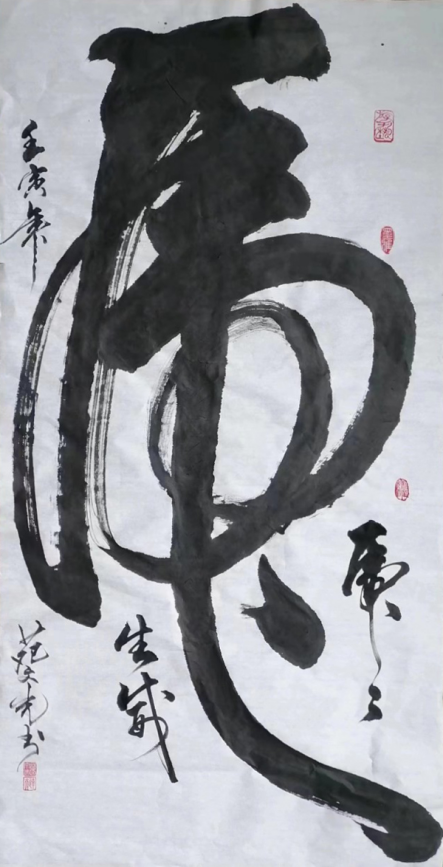 虎
虎虎
生威
壬寅年
范文光书